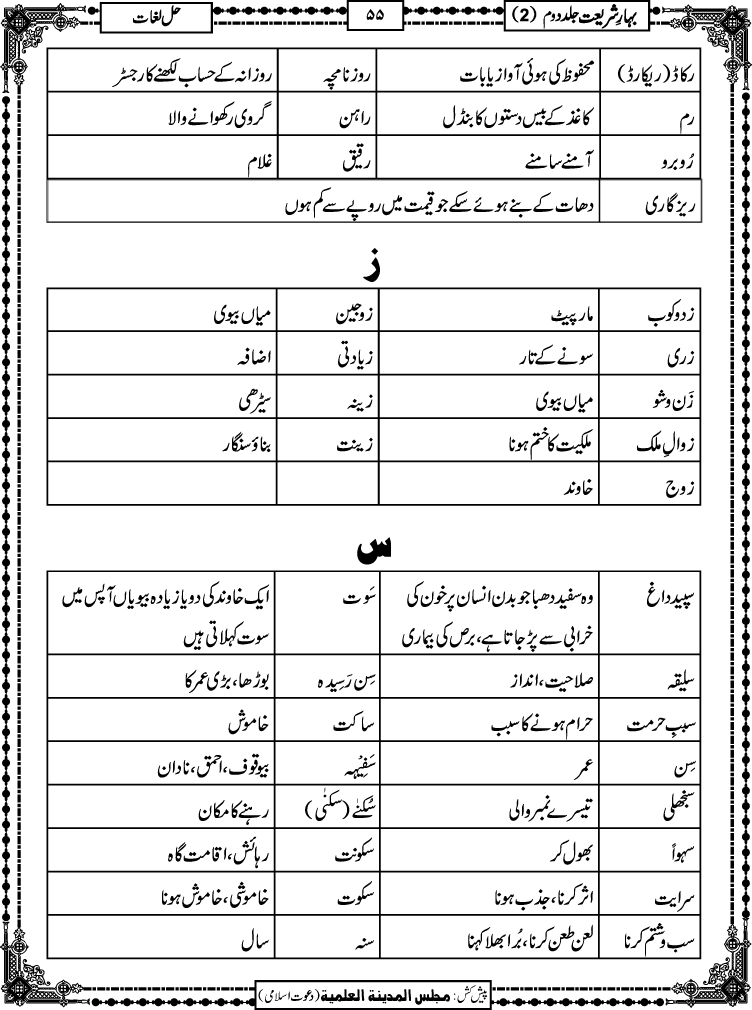 بہارِ شریعت جلد دوم (2) ۵۵ حل لغات
رکاڈ (ریکارڈ) محفوظ کی ہوئی آواز یا بات روزنامچہ روزانہ کے حساب لکھنے کا رجسٹر
رم کاغذ کے بیس دستوں کا بنڈل راہن گروی رکھوانے والا
رُوبرو آمنے سامنے رقیق غلام
ریزگاری دھات کے بنے ہوئے سکے جو قیمت میں روپے سے کم ہوں
ز
زدوکوب مار پیٹ زوجین میاں بیوی
زری سونے کے تار زیادتی اضافہ
زَن وشو میاں بیوی زینہ سیڑھی
زوالِ ملک ملکیت کا ختم ہونا زینت بناؤ سنگار
زوج خاوند
س
سپید داغ وہ سفید دھبا جو بدن انسان پر خون کی سَوت ایک خاوند کی دو یا زیادہ بیویاں آپس میں
خرابی سے پڑ جاتا ہے، برص کی بیماری سوت کہلاتی ہیں
سلیقہ صلاحیت، انداز سِن رَسِیدہ بوڑھا، بڑی عمر کا
سببِ حرمت حرام ہونے کا سبب ساکت خاموش
سِن عمر سَفِیْہہ بیوقوف، احمق، نادان
سنجھلی تیسرے نمبر والی سُکنٰے (سکنٰی) رہنے کا مکان
سہواً بھول کر سکونت رہائش، اقامت گاہ
سرایت اثر کرنا، جذب ہونا سکوت خاموشی، خاموش ہونا
سب وشتم کرنا لعن طعن کرنا، بُرا بھلا کہنا سنہ سال
پیش کش: مجلس المدینة العلمیة (دعوت اسلامی)